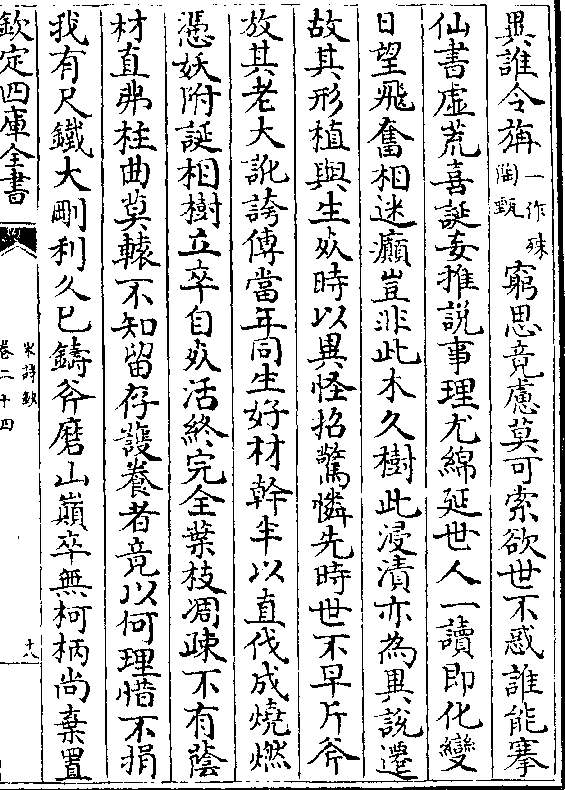 異誰令旃一作殊陶甄窮思竟慮莫可索欲世不惑誰能搴
仙書虛荒喜誕妄推說事理尤綿延世人一讀即化變
日望飛奮相迷癲豈非此木久樹此浸漬亦為異說遷
故其形植與生死時以異怪招驚憐先時世不早斤斧
放其老大訛誇傳當年同生好材幹半以直伐成燒燃
憑妖附誕相樹立卒自死活終完全葉枝凋疎不有蔭
材直弗柱曲莫轅不知留存護養者竟以何理惜不捐
我有尺鐵大剛利久已鑄斧磨山巔卒無柯柄尚棄置
欽定四庫全書
宋詩鈔
卷二十四
十八